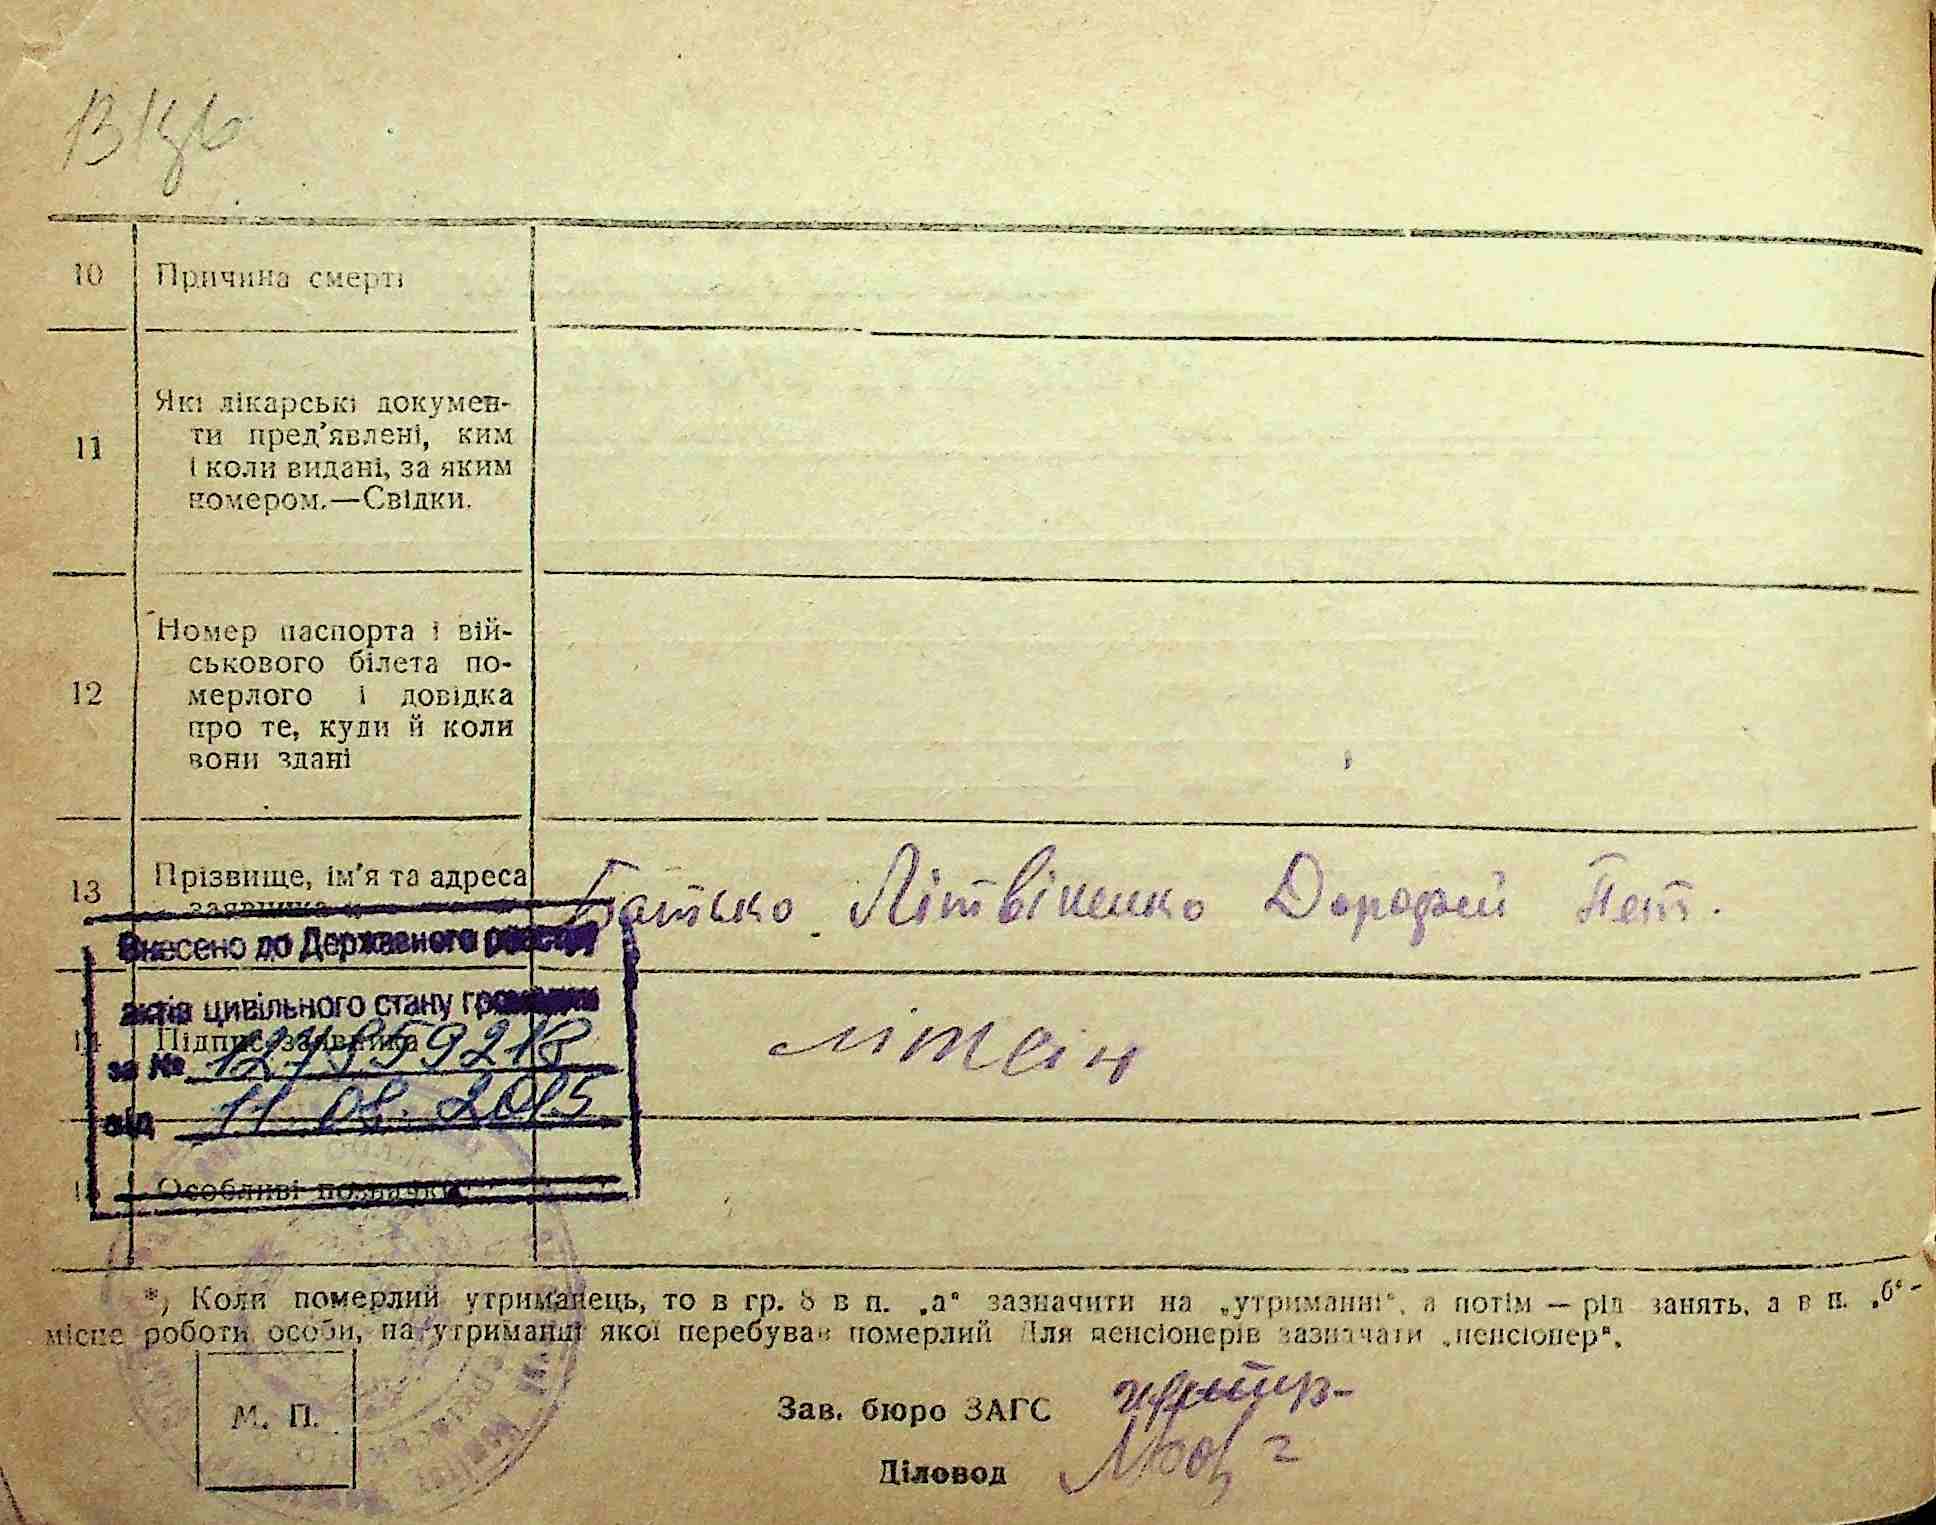 10 Причина смерті
11 Які лікарські докумен-
ти пред'явлені, ким
і коли видані, за яким
номером.—Свідки.
12 Номер паспорта і вій-
ськового білета по-
мерлого і довідка
про те, куди й коли
вони здані
13 Прізвище, ім'я та адреса
заявника
Батько Літвіненко Дорофей Пет.
Внесено до Державного реєстру
актів цивільного стану громадян
14 Підпис заявника
літвін
за №
від 11.08.2015
15 Особливі позначки
*) Коли померлий утриманець, то в гр. 8 в п. „а“ зазначити на „утриманні“, а потім — рід занять, а в п. „б“ –
місце роботи особи, на утриманні якої перебував померлий Для пенсіонерів зазначати „пенсіонер“.
М. П.
Зав. бюро ЗАГС
Діловод